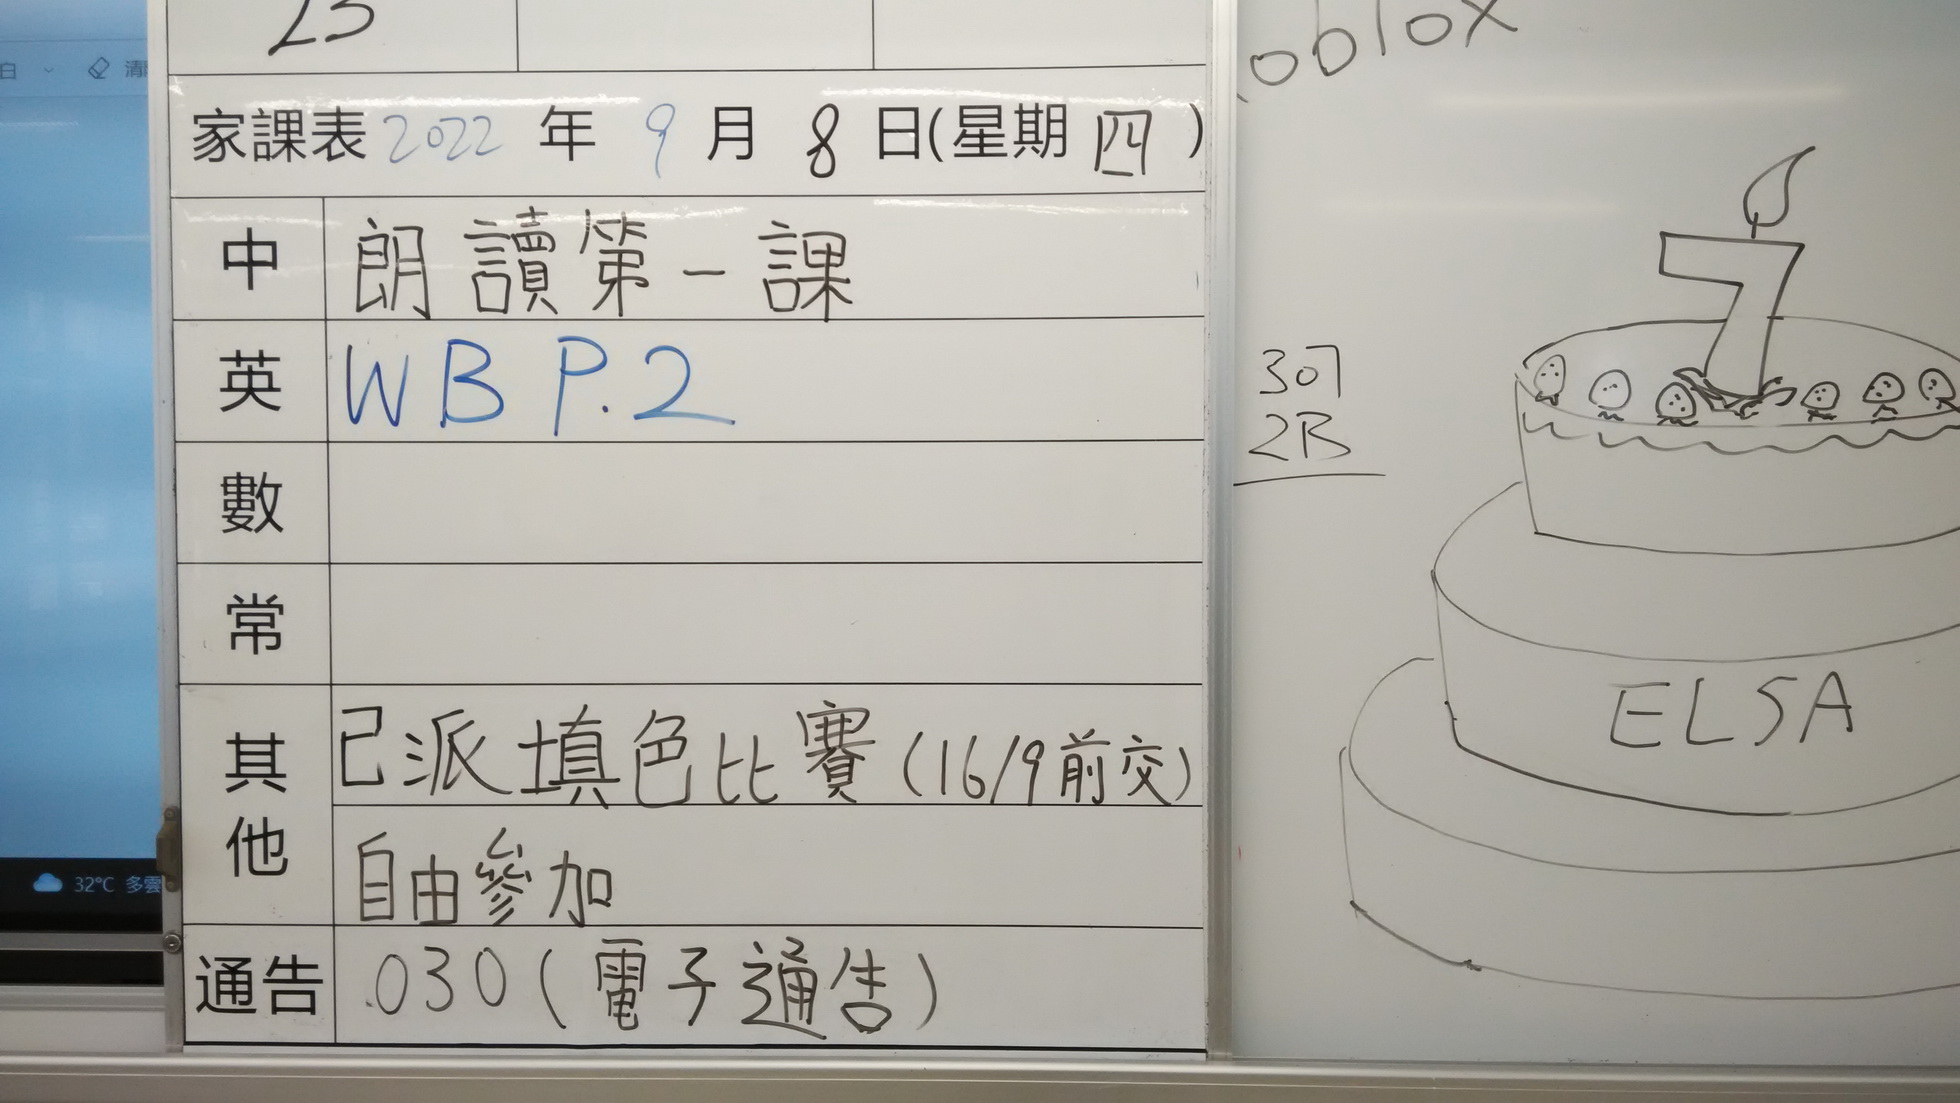 家課表 2022 年 9 月 8 日(星期 四 )
中 朗讀第一課
英 WB P.2
數
常
其他 已派填色比賽 (16/9前交)
自由參加
通告 030 (電子通告)
oblox
307
2B
7
ELSA
32°C 多雲